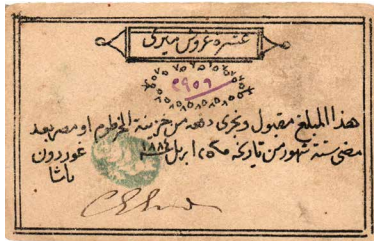 عشرة غروش ميرى
٢٩٥٦
هذا المبلغ مقبول وتجرى دفعه من خزينة الخرطوم او مصر بعد
مضى ستة شهور من تاريخه ٢٥ ابريل ١٨٨٤
غوردون
باشا